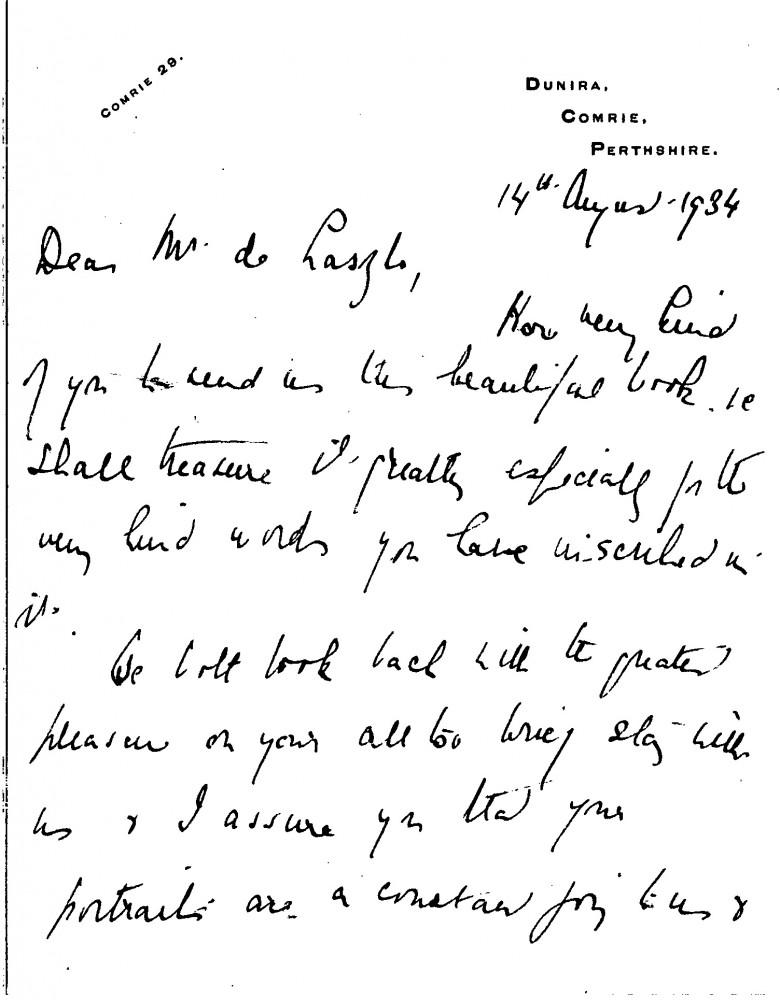 COMRIE 29.
DUNIRA,
COMRIE,
PERTHSHIRE.
14th August 1934
Dear Mr. de Laszlo,
How very kind
of you to send us this beautiful book. We
shall treasure it greatly especially for the
very kind words you have inscribed in
it.
We both look back with the greatest
pleasure on your all too brief stay with
us & I assure you that your
portraits are a constant joy to us &